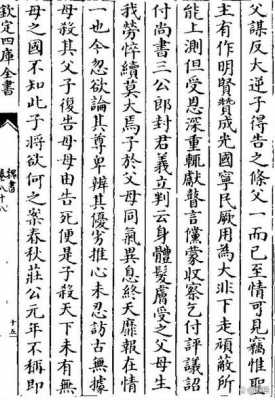 父謀反大逆子得告之條父一而已至情可見竊惟聖
主有作明賢贊成光國寧民厥用為大非下走頑蔽所
能上測但受恩深重輒獻瞽言儻蒙収察乞付評議詔
付尚書三公郎封君義立判云身體髮膚受之父母生
我勞悴續莫大焉子於父母同氣異息終天靡報在情
一也今忽欲論其尊卑辨其優劣推心未忍訪古無據
母殺其父子復告母母由告死便是子殺天下未有無
母之國不知此子將欲何之案春秋莊公元年不稱即
欽定四庫全書
魏書
卷八十八
十五